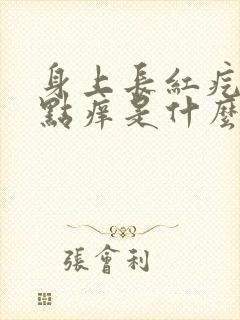 身上長紅疙
點痒是什麼
張會利